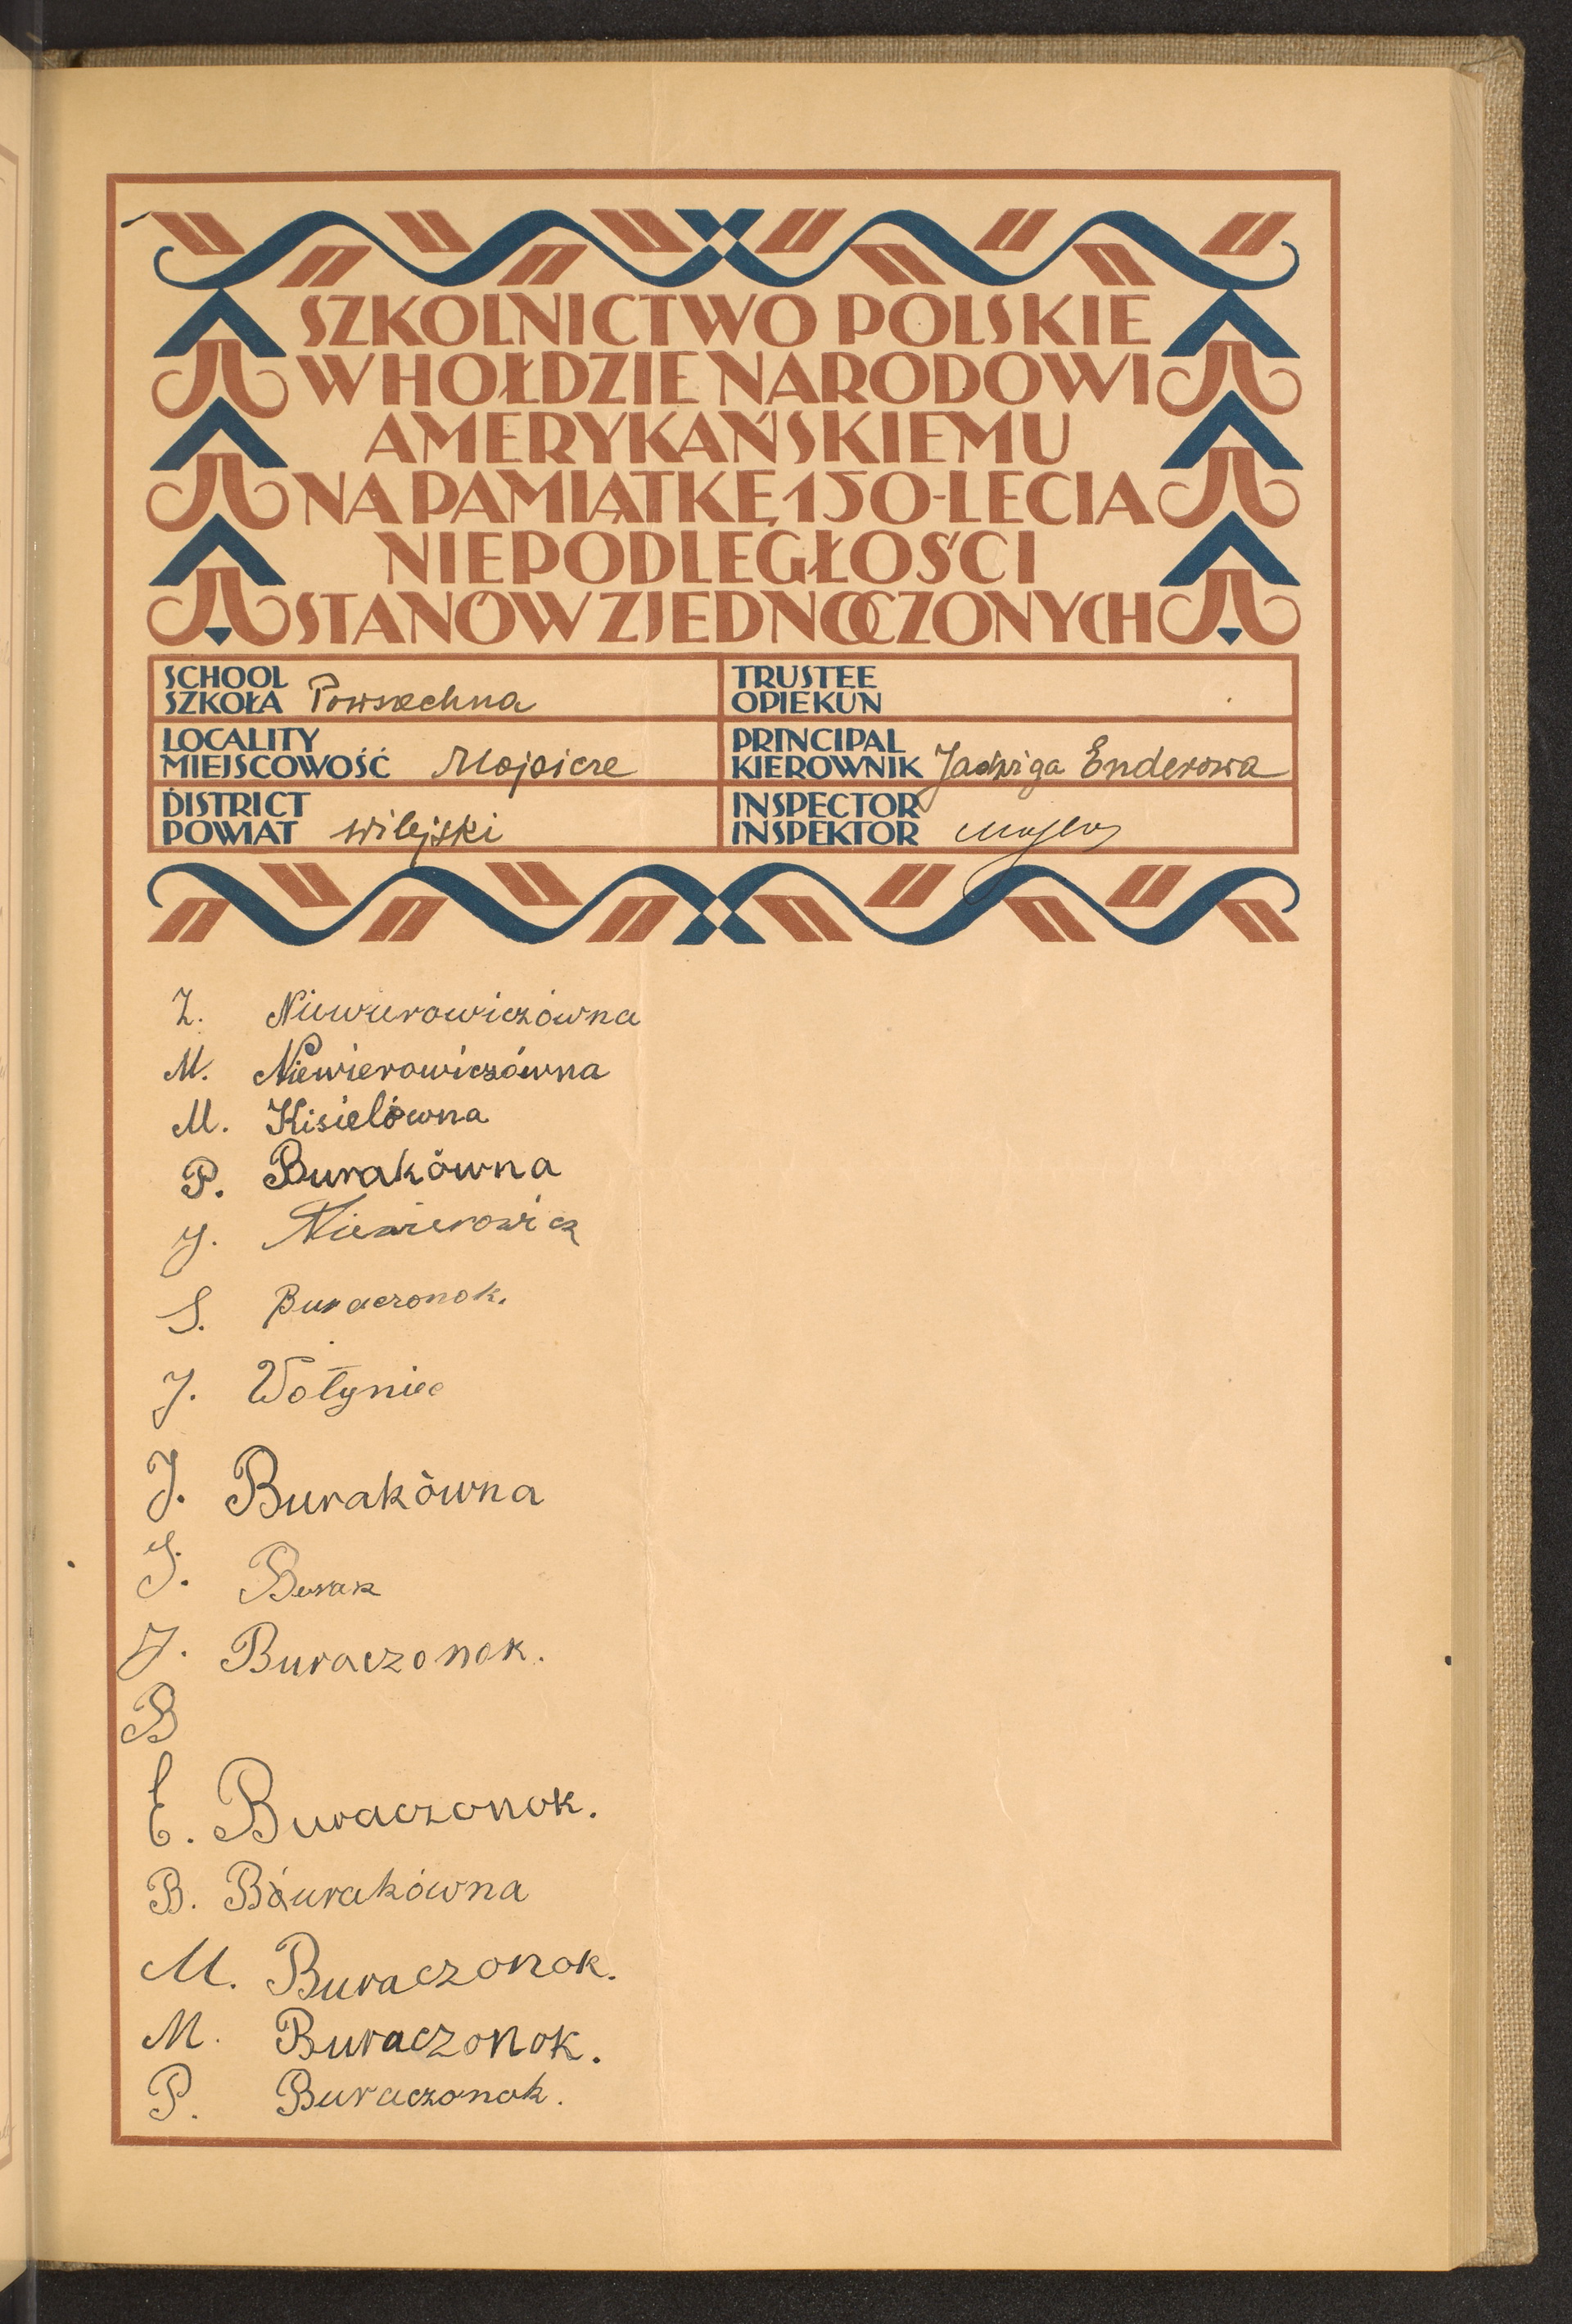 SZKOLNICTWO POLSKIE
W HOŁDZIE NARODOWI
AMERYKAŃSKIEMU
NA PAMIĄTKĘ 150-LECIA
NIEPODLEGŁOŚCI
STANÓW ZJEDNOCZONYCH
SCHOOL
SZKOŁA Powszechna
TRUSTEE
OPIEKUN
LOCALITY
MIEJSCOWOŚĆ Mojsicze
PRINCIPAL
KIEROWNIK Jadwiga Enderowa
DISTRICT
POWIAT wilejski
INSPECTOR
INSPEKTOR
Z. Niewierowiczówna
M. Niewierowiczówna
M. Kisielówna
P. Burakówna
J. Niewierowicz
S. Buraczonok.
J. Wołyniec
J. Burakówna
J. Burak
J. Buraczonok.
B
E. Buraczonok.
B. Burakówna
M. Buraczonok.
M. Buraczonok.
P. Buraczonok.